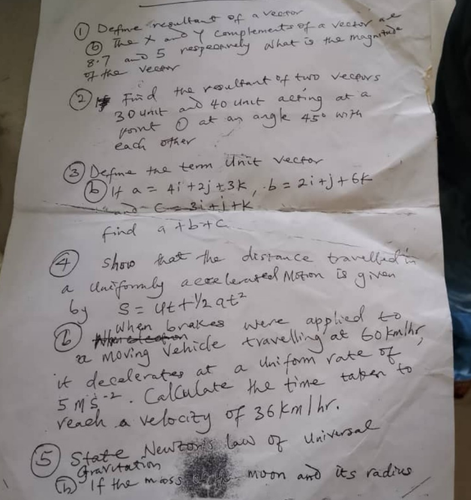 ① Define resultant of a vector
ⓑ The X and Y complements of a vector are
8.7 and 5 respectively what is the magnitude
of the vector
② Find the resultant of two vectors
30 unit and 40 unit acting at a
point O at an angle 45° with
each other
③ Define the term Unit vector
ⓑ If a = 4i+2j+3k, b = 2i+j+6k
and c = 3i+j+k
find a+b+c
④ show that the distance travelled in
a uniformly accelerated Motion is given
by S = Ut+1/2 at²
ⓑ When brakes were applied to
a moving vehicle travelling at 60km/hr,
it decelerates at a uniform rate of
5 ms⁻². Calculate the time taken to
reach a velocity of 36km/hr.
⑤ State Newton law of Universal
gravitation
ⓑ If the mass moon and its radius